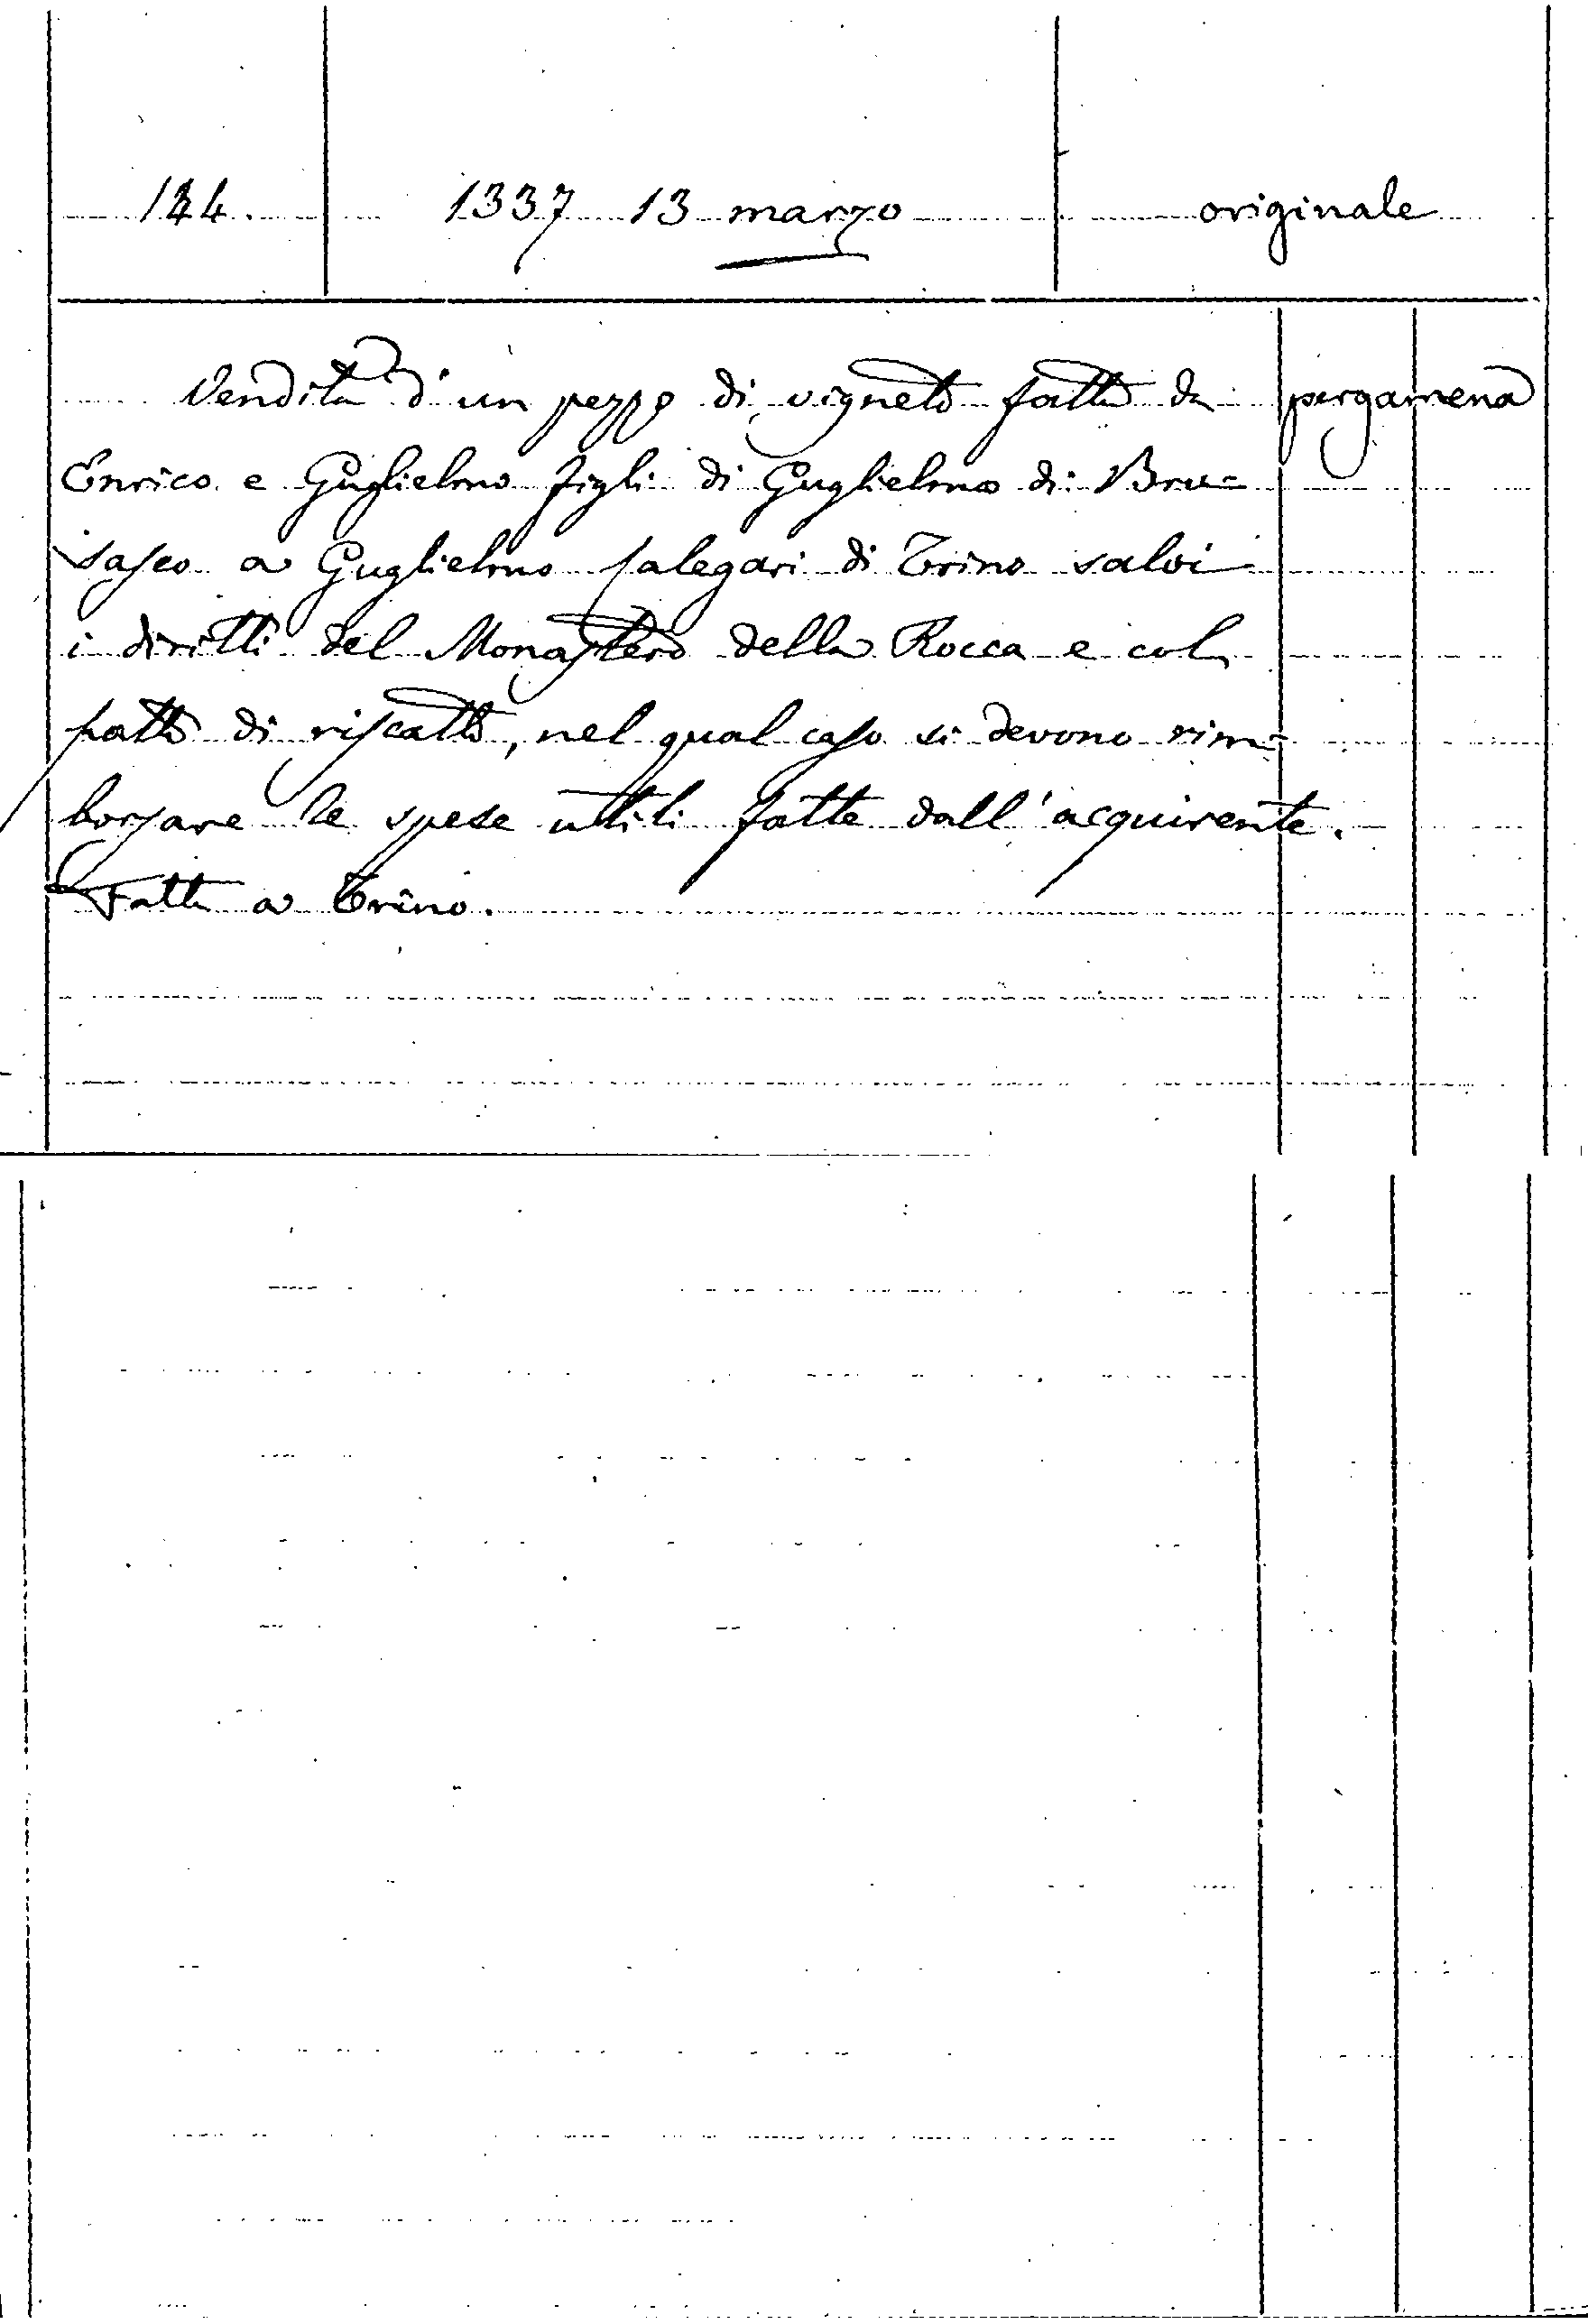 144. 1337 13 marzo originale
Vendita d'un pezzo di vigneto fatta da pergamena
Enrico e Guglielmo figli di Guglielmo di Bru=
sasco a Guglielmo salegari di Trino salvi
i diritti del Monastero della Rocca e col
patto di riscatto, nel qual caso si devono rim=
borsare le spese utili fatte dall'acquirente.
Fatta a Trino.